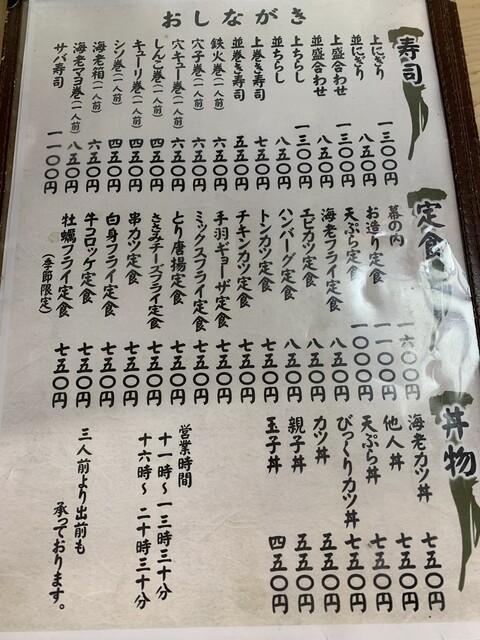 おしながき
寿司
上にぎり 一三〇〇円
並にぎり 八五〇円
上盛合わせ 一三〇〇円
並盛合わせ 八五〇円
上ちらし 一三〇〇円
並ちらし 八五〇円
上巻き寿司 七五〇円
並巻き寿司 五五〇円
鉄火巻(一人前) 六五〇円
穴子巻(一人前) 六五〇円
穴キュー巻(一人前) 六五〇円
しんこ巻(一人前) 四五〇円
キューリ巻(一人前) 四五〇円
シソ巻(一人前) 四五〇円
海老箱(一人前) 六五〇円
海老マヨ巻(一人前) 八五〇円
サバ寿司 一一〇〇円
定食
幕の内 一六〇〇円
お造り定食 一一〇〇円
天ぷら定食 一〇〇〇円
海老フライ定食 八五〇円
エビカツ定食 八五〇円
ハンバーグ定食 八五〇円
トンカツ定食 七五〇円
チキンカツ定食 七五〇円
手羽ギョーザ定食 七五〇円
ミックスフライ定食 七五〇円
とり唐揚定食 七五〇円
ささみチーズフライ定食 七五〇円
串カツ定食 七五〇円
白身フライ定食 七五〇円
牛コロッケ定食 七五〇円
牡蠣フライ定食(季節限定) 七五〇円
丼物
海老カツ丼 七五〇円
他人丼 七五〇円
天ぷら丼 七五〇円
びっくりカツ丼 七五〇円
カツ丼 五五〇円
親子丼 五五〇円
玉子丼 四五〇円
営業時間
十一時〜一三時三十分
十六時〜二十時三十分
三人前より出前も
承っております。